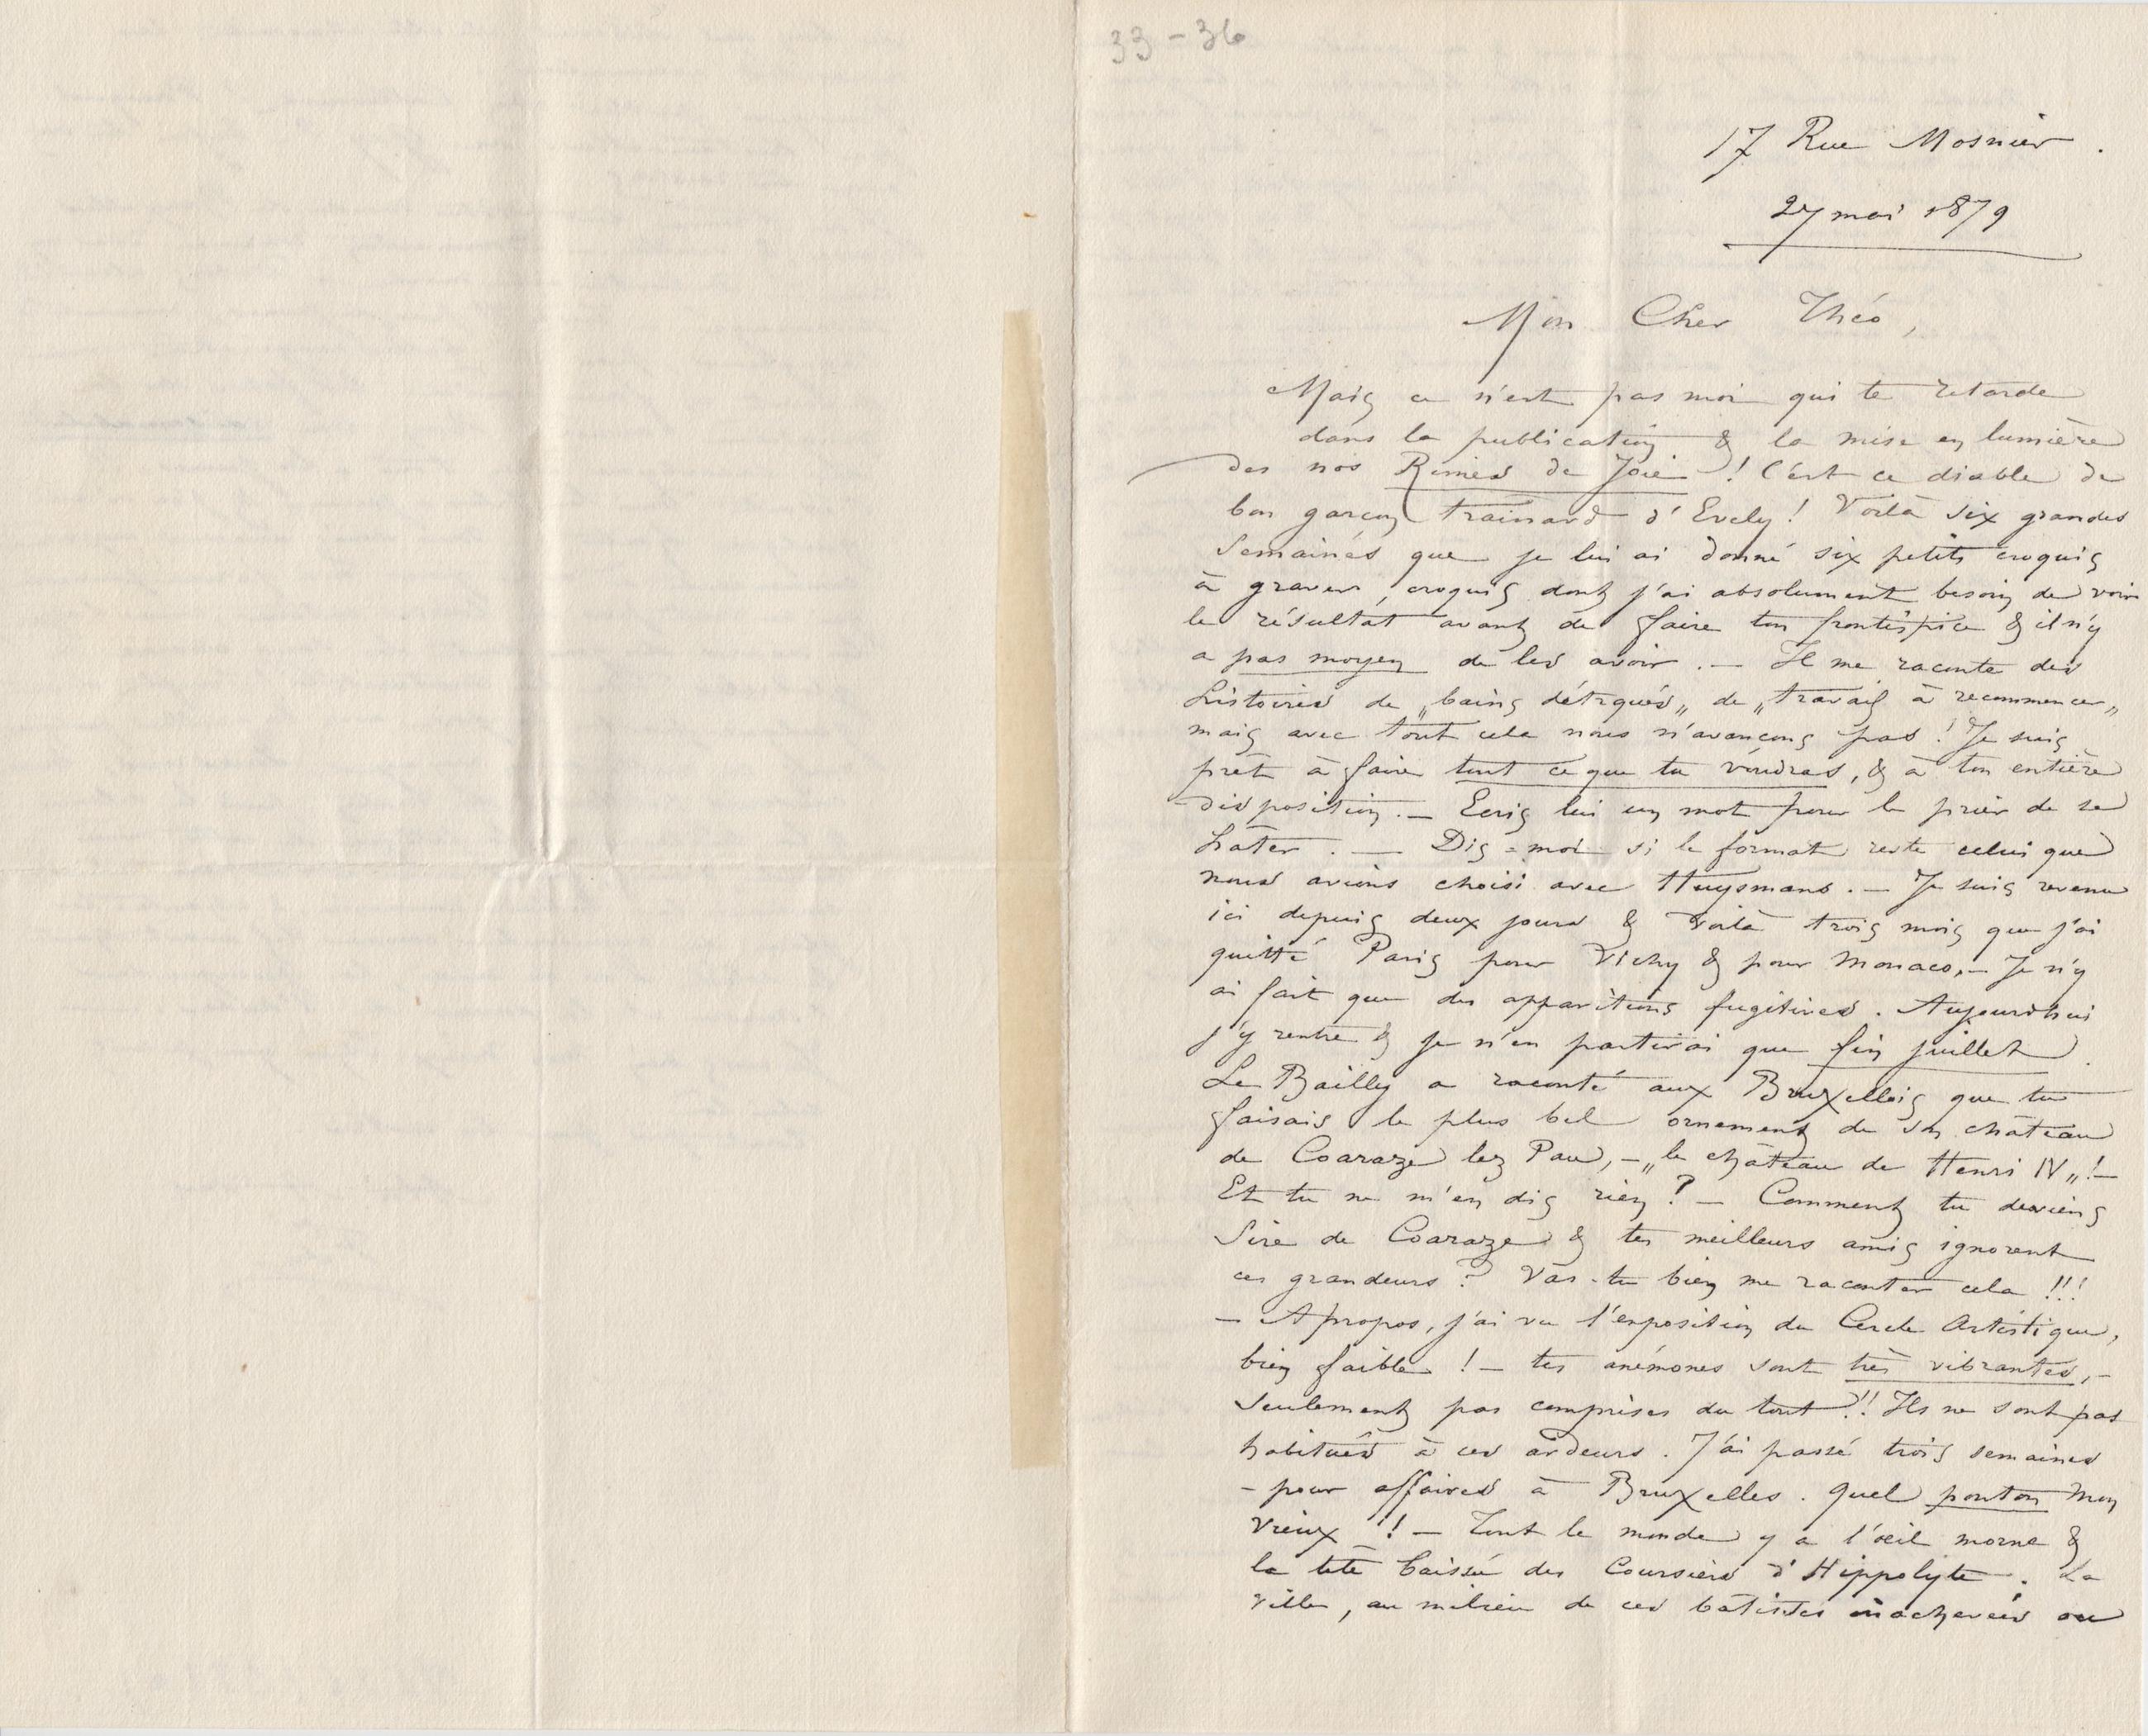 33 - 36
17 Rue Mosnier.
27 mai 1879
Mon Cher Théo,
Mais ce n'est pas moi qui te retarde
dans la publication & la mise en lumière
des nos Rimes de Joie ! C'est ce diable de
bon garçon trainard d'Evely ! Voilà six grandes
semaines que je lui ai donné six petits croquis
à graver, croquis dont j'ai absolument besoin de voir
le résultat avant de faire ton frontispice & il n'y
a pas moyen de les avoir. — Il me raconte des
histoires de „bains détraqués„ de „travail à recommencer„
mais avec tout cela nous n'avançons pas ! Je suis
prêt à faire tout ce que tu voudras, & à ton entière
disposition. — Ecris lui un mot pour le prier de se
hâter. — Dis-moi si le format reste celui que
nous avions choisi avec Huysmans. — Je suis revenu
ici depuis deux jours & voilà trois mois que j'ai
quitté Paris pour Vichy & pour Monaco. — Je n'y
ai fait que des apparitions fugitives. Aujourd'hui
j'y rentre & je n'en partirai que fin juillet.
Le Bailly a raconté aux Bruxellois que tu
faisais le plus bel ornement de son château
de Coaraze lez Pau, — „le château de Henri IV„ ! —
Et tu ne m'en dis rien ? — Comment tu deviens
Sire de Coaraze & tes meilleurs amis ignorent
ces grandeurs ? Vas-tu bien me raconter cela !!!
— A propos, j'ai vu l'exposition du Cercle Artistique,
bien faible ! — tes anémones sont très vibrantes, —
seulement pas comprises du tout !!! Ils ne sont pas
habitués à ces ardeurs. J'ai passé trois semaines
— pour affaires à Bruxelles. Quel ponton mon
vieux !! — Tout le monde y a l'œil morne &
la tête baissée des Coursiers d'Hippolyte. La
ville, au milieu de ces bâtisses inachevées ou